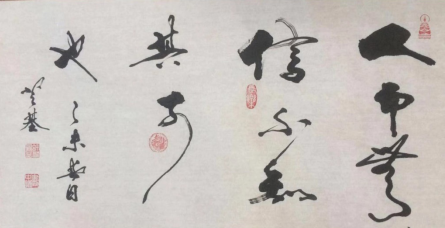 人而無
信不知
其可
也 乙未